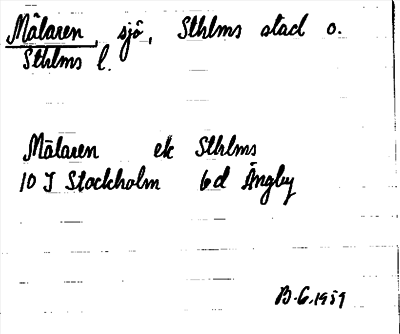 Mälaren, sjö, Sthlms stad o.
Sthlms l.
Mälaren ek Sthlms
10 I Stockholm 6d Ängby
B.G. 1959